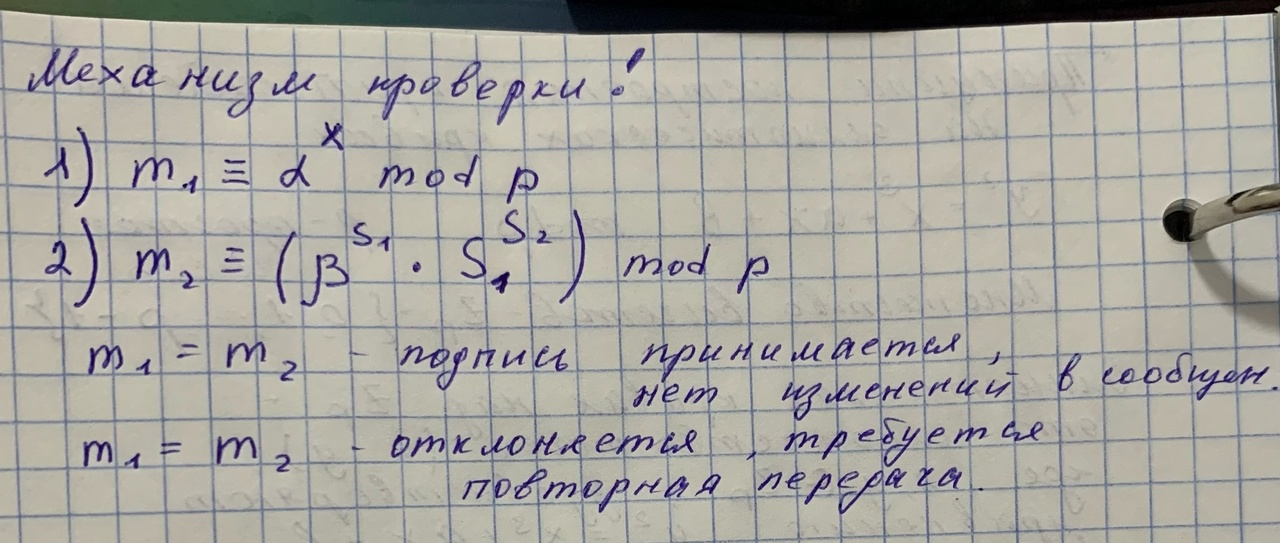 Механизм проверки!
1) m₁ ≡ α^x mod p
2) m₂ ≡ (β^S₁ · S₁^S₂) mod p
m₁ = m₂ - подпись принимается,
нет изменений в сообщен.
m₁ = m₂ - отклоняется, требуется
повторная передача.